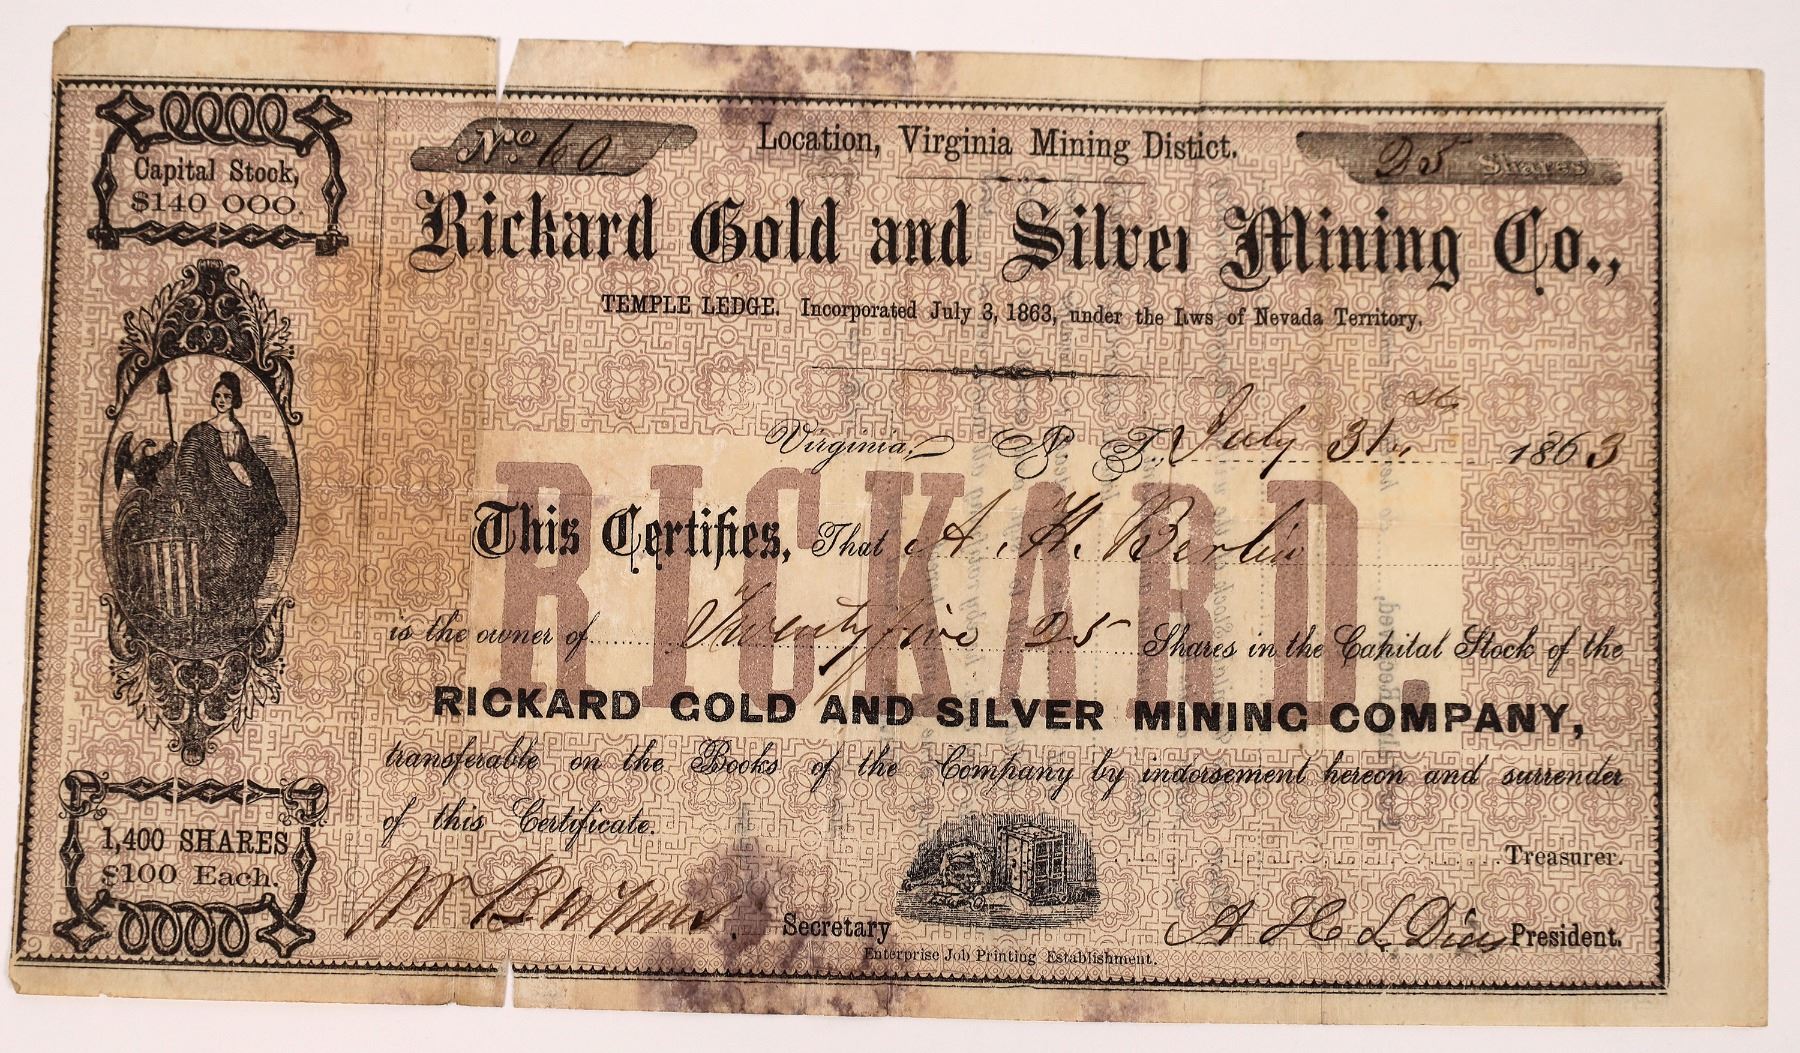 Capital Stock,
$140 000.
No. 60
Location, Virginia Mining Distict.
25 Shares
Rickard Gold and Silver Mining Co.,
TEMPLE LEDGE. Incorporated July 3, 1863, under the Lws of Nevada Territory.
Virginia, N. T., July 31st 1863
RICKARD.
This Certifies, That A. H. Berlin
is the owner of Twenty five 25 Shares in the Capital Stock of the
RICKARD GOLD AND SILVER MINING COMPANY,
transferable on the Books of the Company by indorsement hereon and surrender
of this Certificate.
1,400 SHARES
$100 Each.
Treasurer.
Secretary
A H L Dias President.
Enterprise Job Printing Establishment.